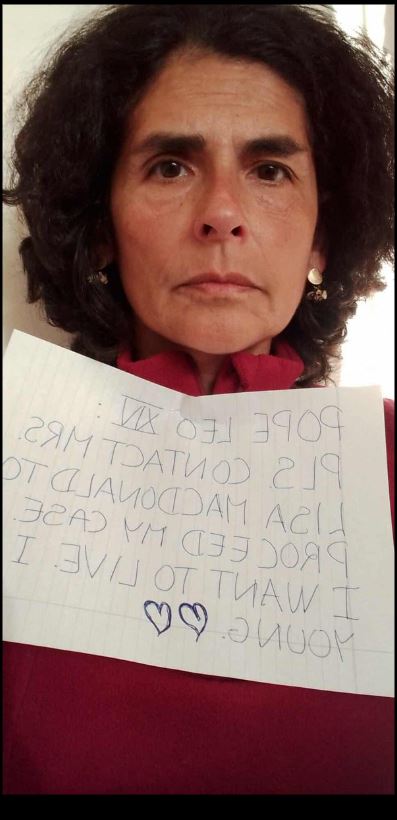 POPE LEO XIV :
PLS. CONTACT MRS.
LISA MACDONALD TO
PROCEED MY CASE.
I WANT TO LIVE. I
YOUNG.